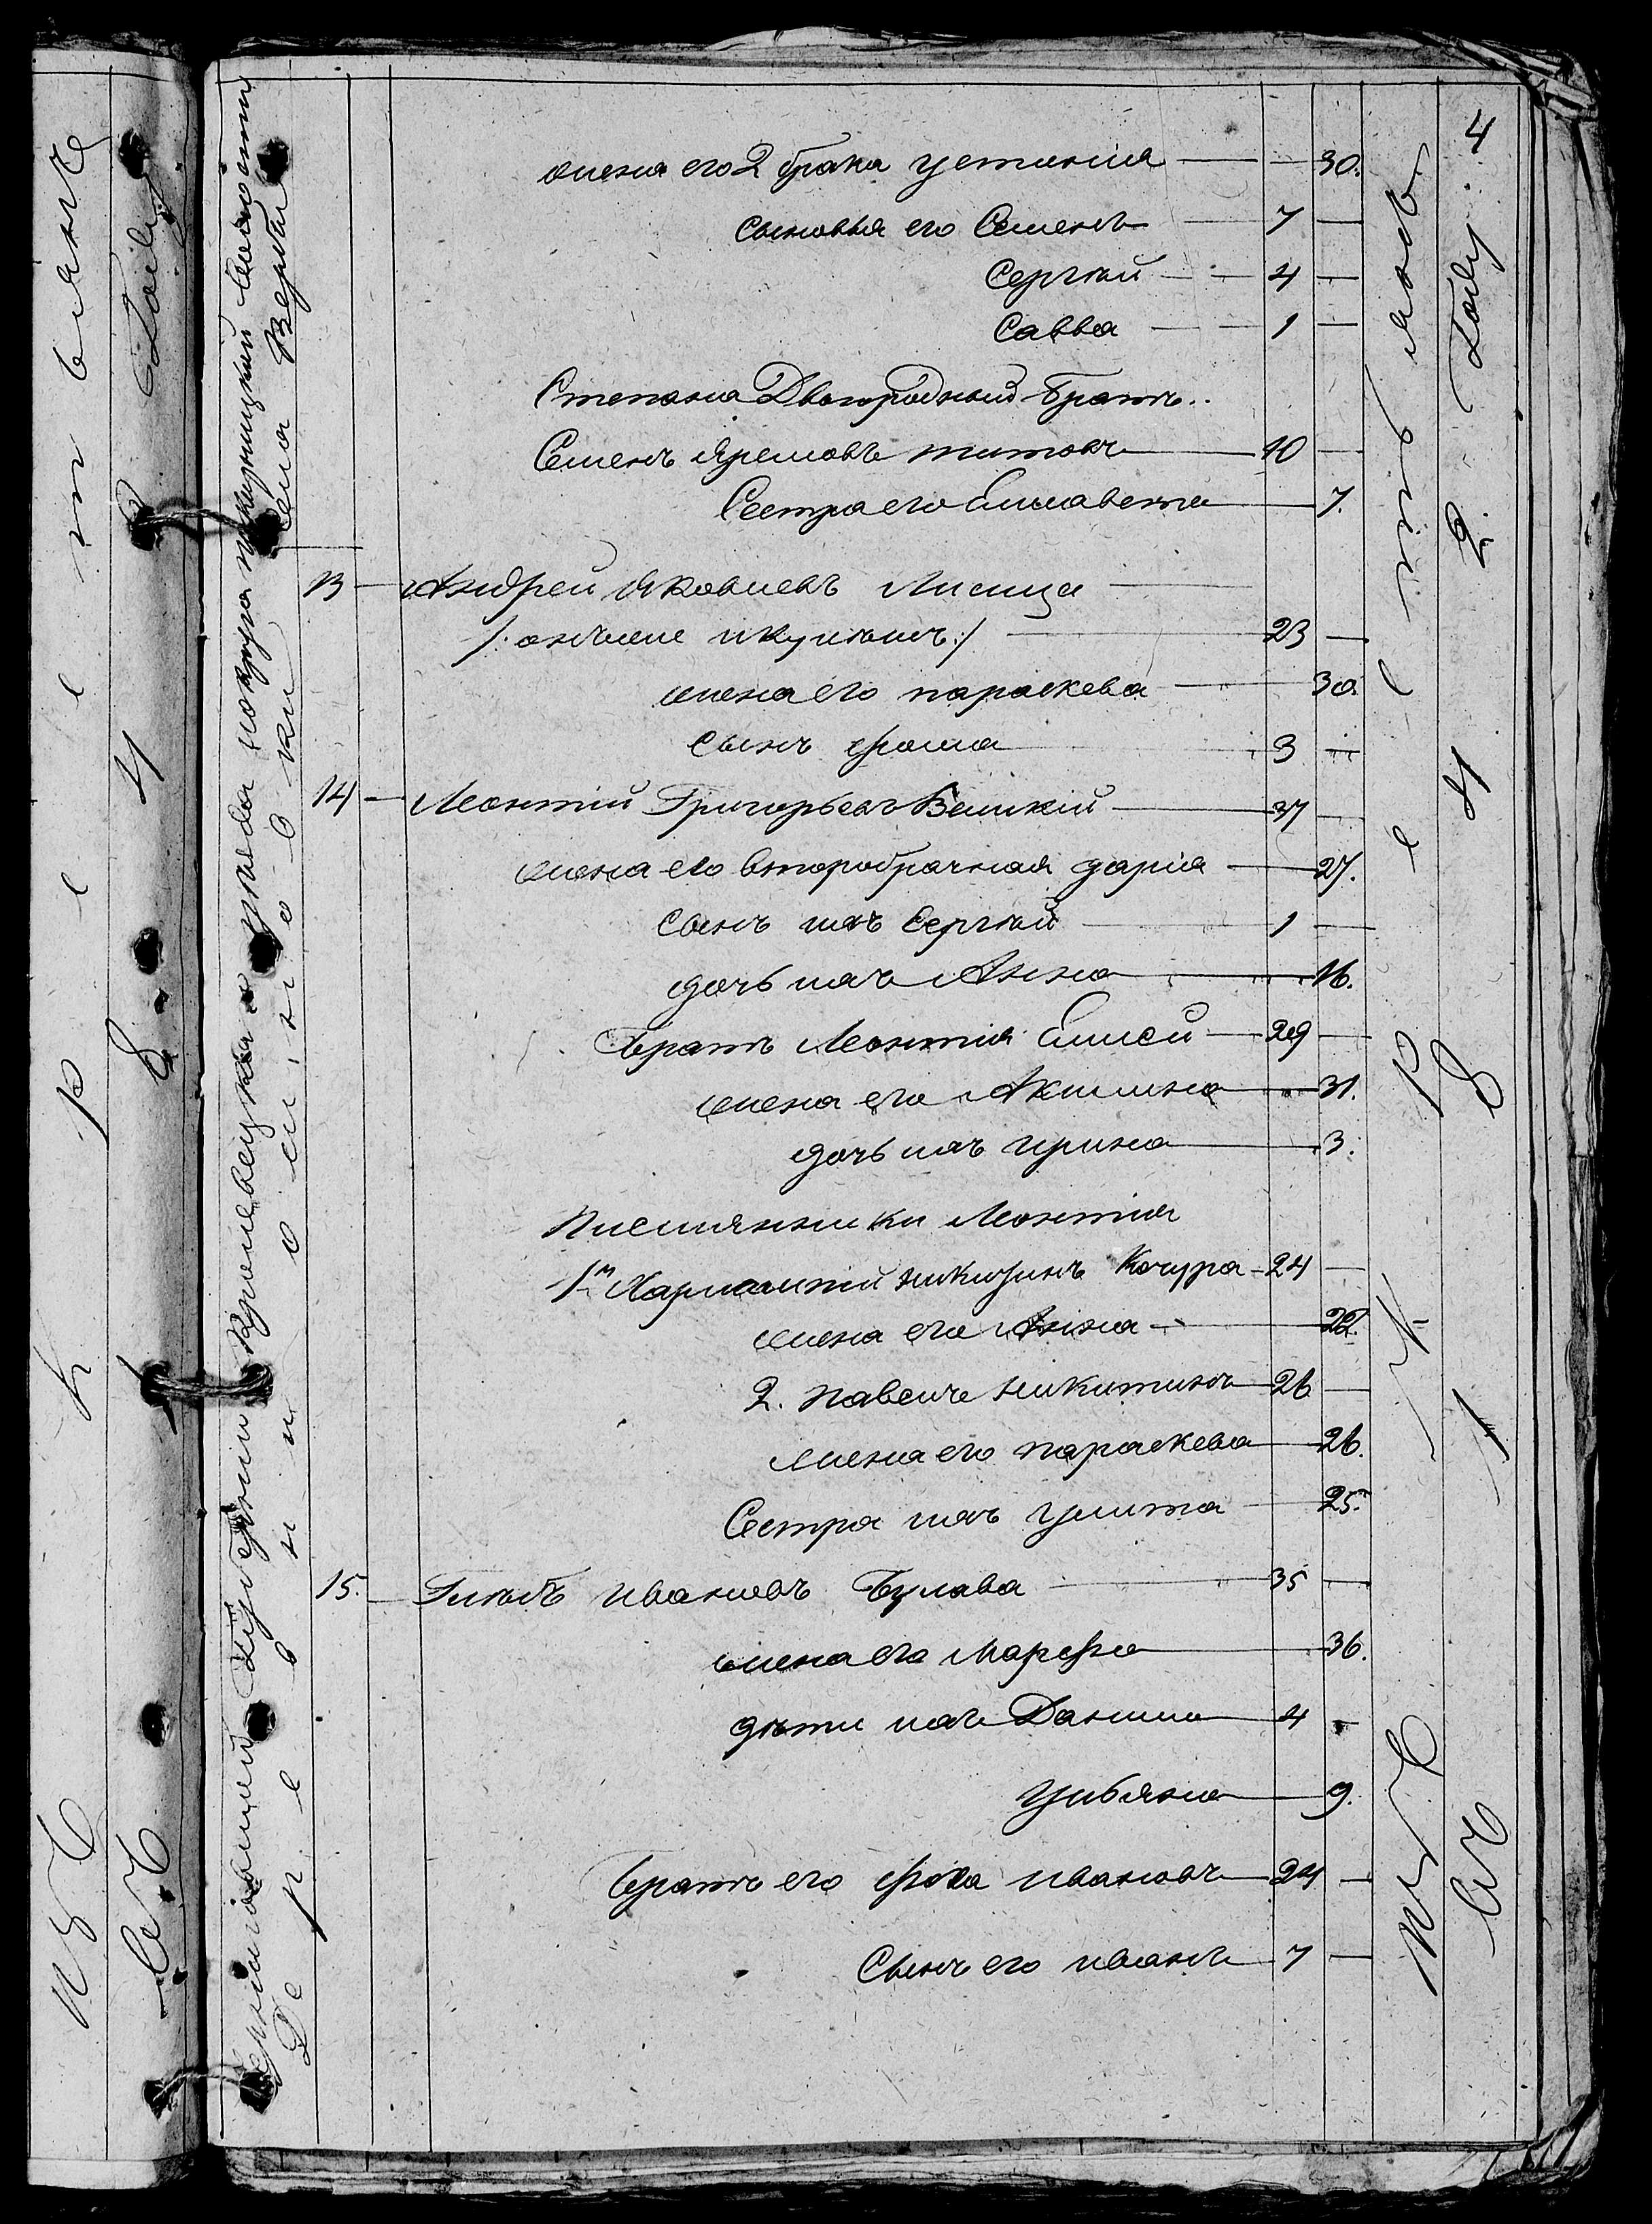 жена его 2 брака Устинія — — 30.
сыновья его Семенъ — 7 —
Сергѣй — 4 —
Савва — 1 —
Степана Двоюродный Братъ..
Семенъ Яремовъ титовъ — 10 —
Сестра его Елисавета — 7.
13 — Андрей Яковлевъ Лисица —
/: онъже и :/ — 23 —
жена его параскева — 30
сынъ фома — 3 —
14 — Леонтій Григорьевъ Великій — 37 —
жена его второбрачная дарія — 27.
сынъ ихъ Сергѣй — 1 —
дочь ихъ Анна — 16.
братъ Леонтія Елисей — 29 —
жена его Акилина — 31.
дочь ихъ ирина — 3.
Племянники Леонтія
1й Харлампій никитинъ Кочура — 24 —
жена его Анна — 22.
2. павелъ никитинъ — 26 —
жена его параскева — 26.
Сестра ихъ улита — 25.
15. — Глѣбъ ивановъ Булава — 35 —
жена его Марфа — 36.
дѣти ихъ Данило — 4 —
ульяна — 9.
братъ его фока ивановъ — 24 —
Сынъ его иванъ — 7 —
Черниговской Губерніи Кролевецкаго уѣзда
Села Вербы
Д е р е в н и
И З Ъ К р е с т ь я н ъ
В Ъ 1 8 4 2 Году. 4
И З Ъ К р е с т ь я н ъ
В Ъ 1 8 4 2 Году